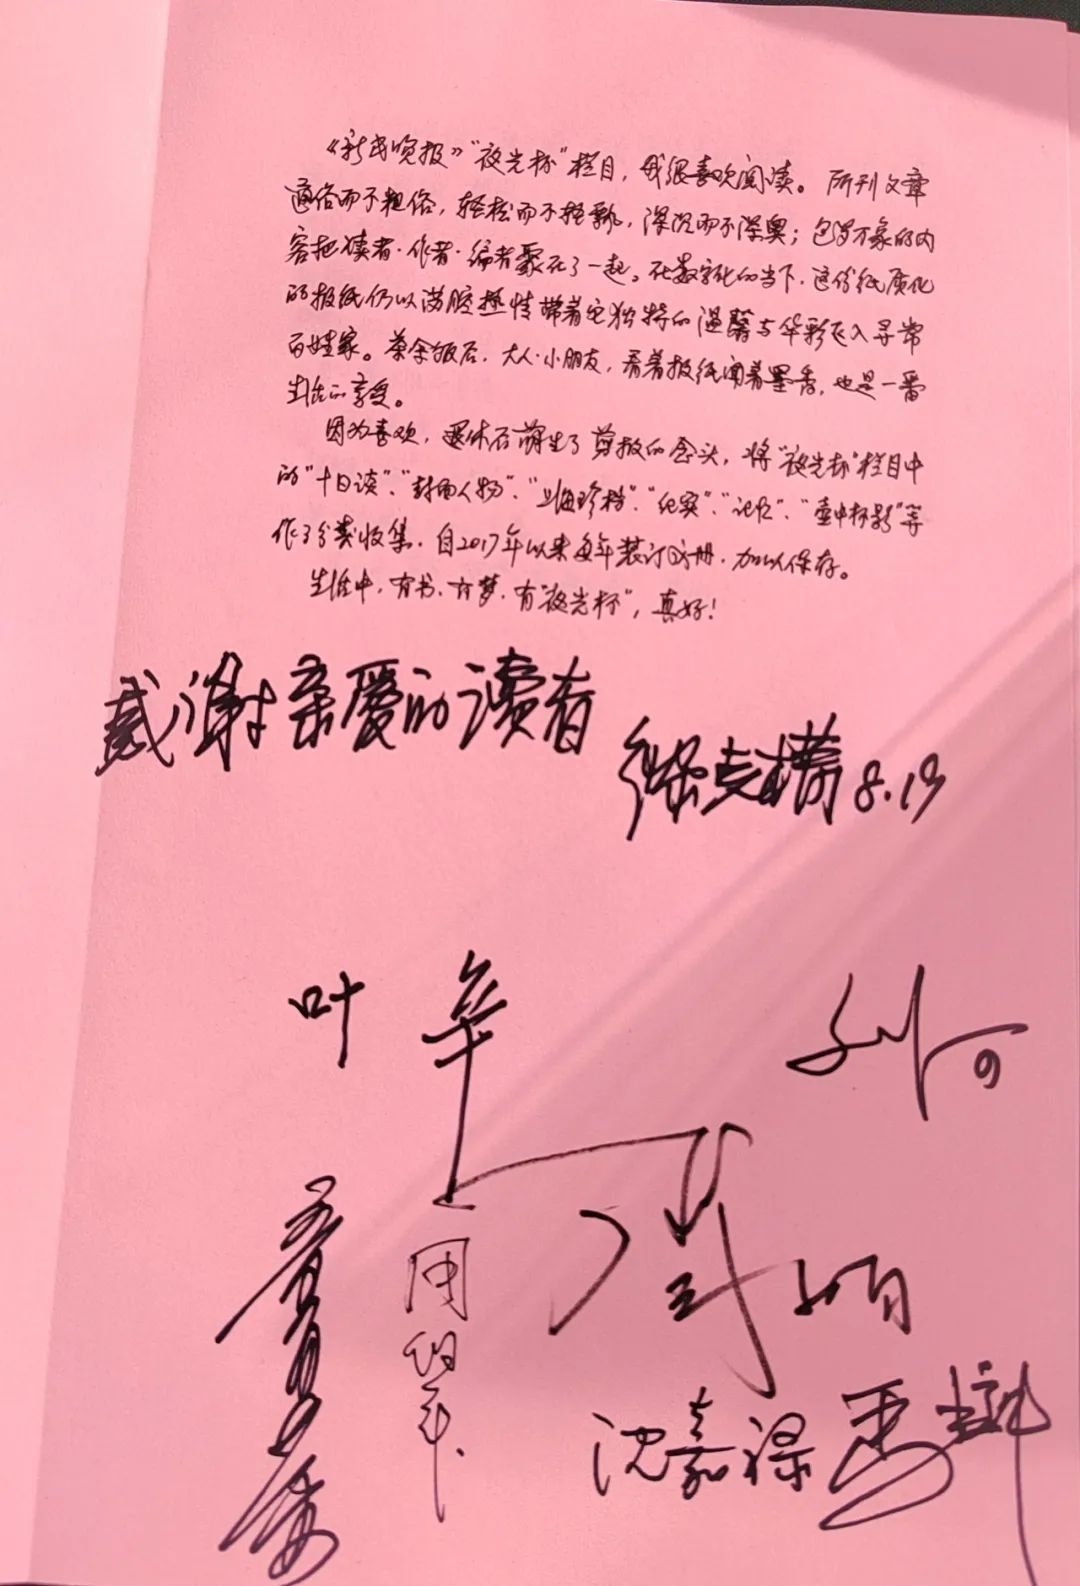 《新民晚报》“夜光杯”栏目，我很喜欢阅读。所刊文章
通俗而不粗俗，轻松而不轻飘，深沉而不深奥；包罗万象的内
容把读者·作者·编者聚在了一起。在数字化的当下，这份纸质化
的报纸仍以满腔热情带着它独特的温馨与华彩飞入寻常
百姓家。茶余饭后，大人·小朋友，看着报纸闻着墨香，也是一番
生活的享受。
因为喜欢，退休后萌生了剪报的念头，将“夜光杯”栏目中
的“十日谈”、“封面人物”、“上海珍档”、“纪实”、“记忆”、“壶中杯影”等
作了分类收集，自2017年以来每年装订成册，加以保存。
生活中，有书、有梦、有“夜光杯”，真好！
感谢亲爱的读者
8.19
叶辛
沈嘉禄